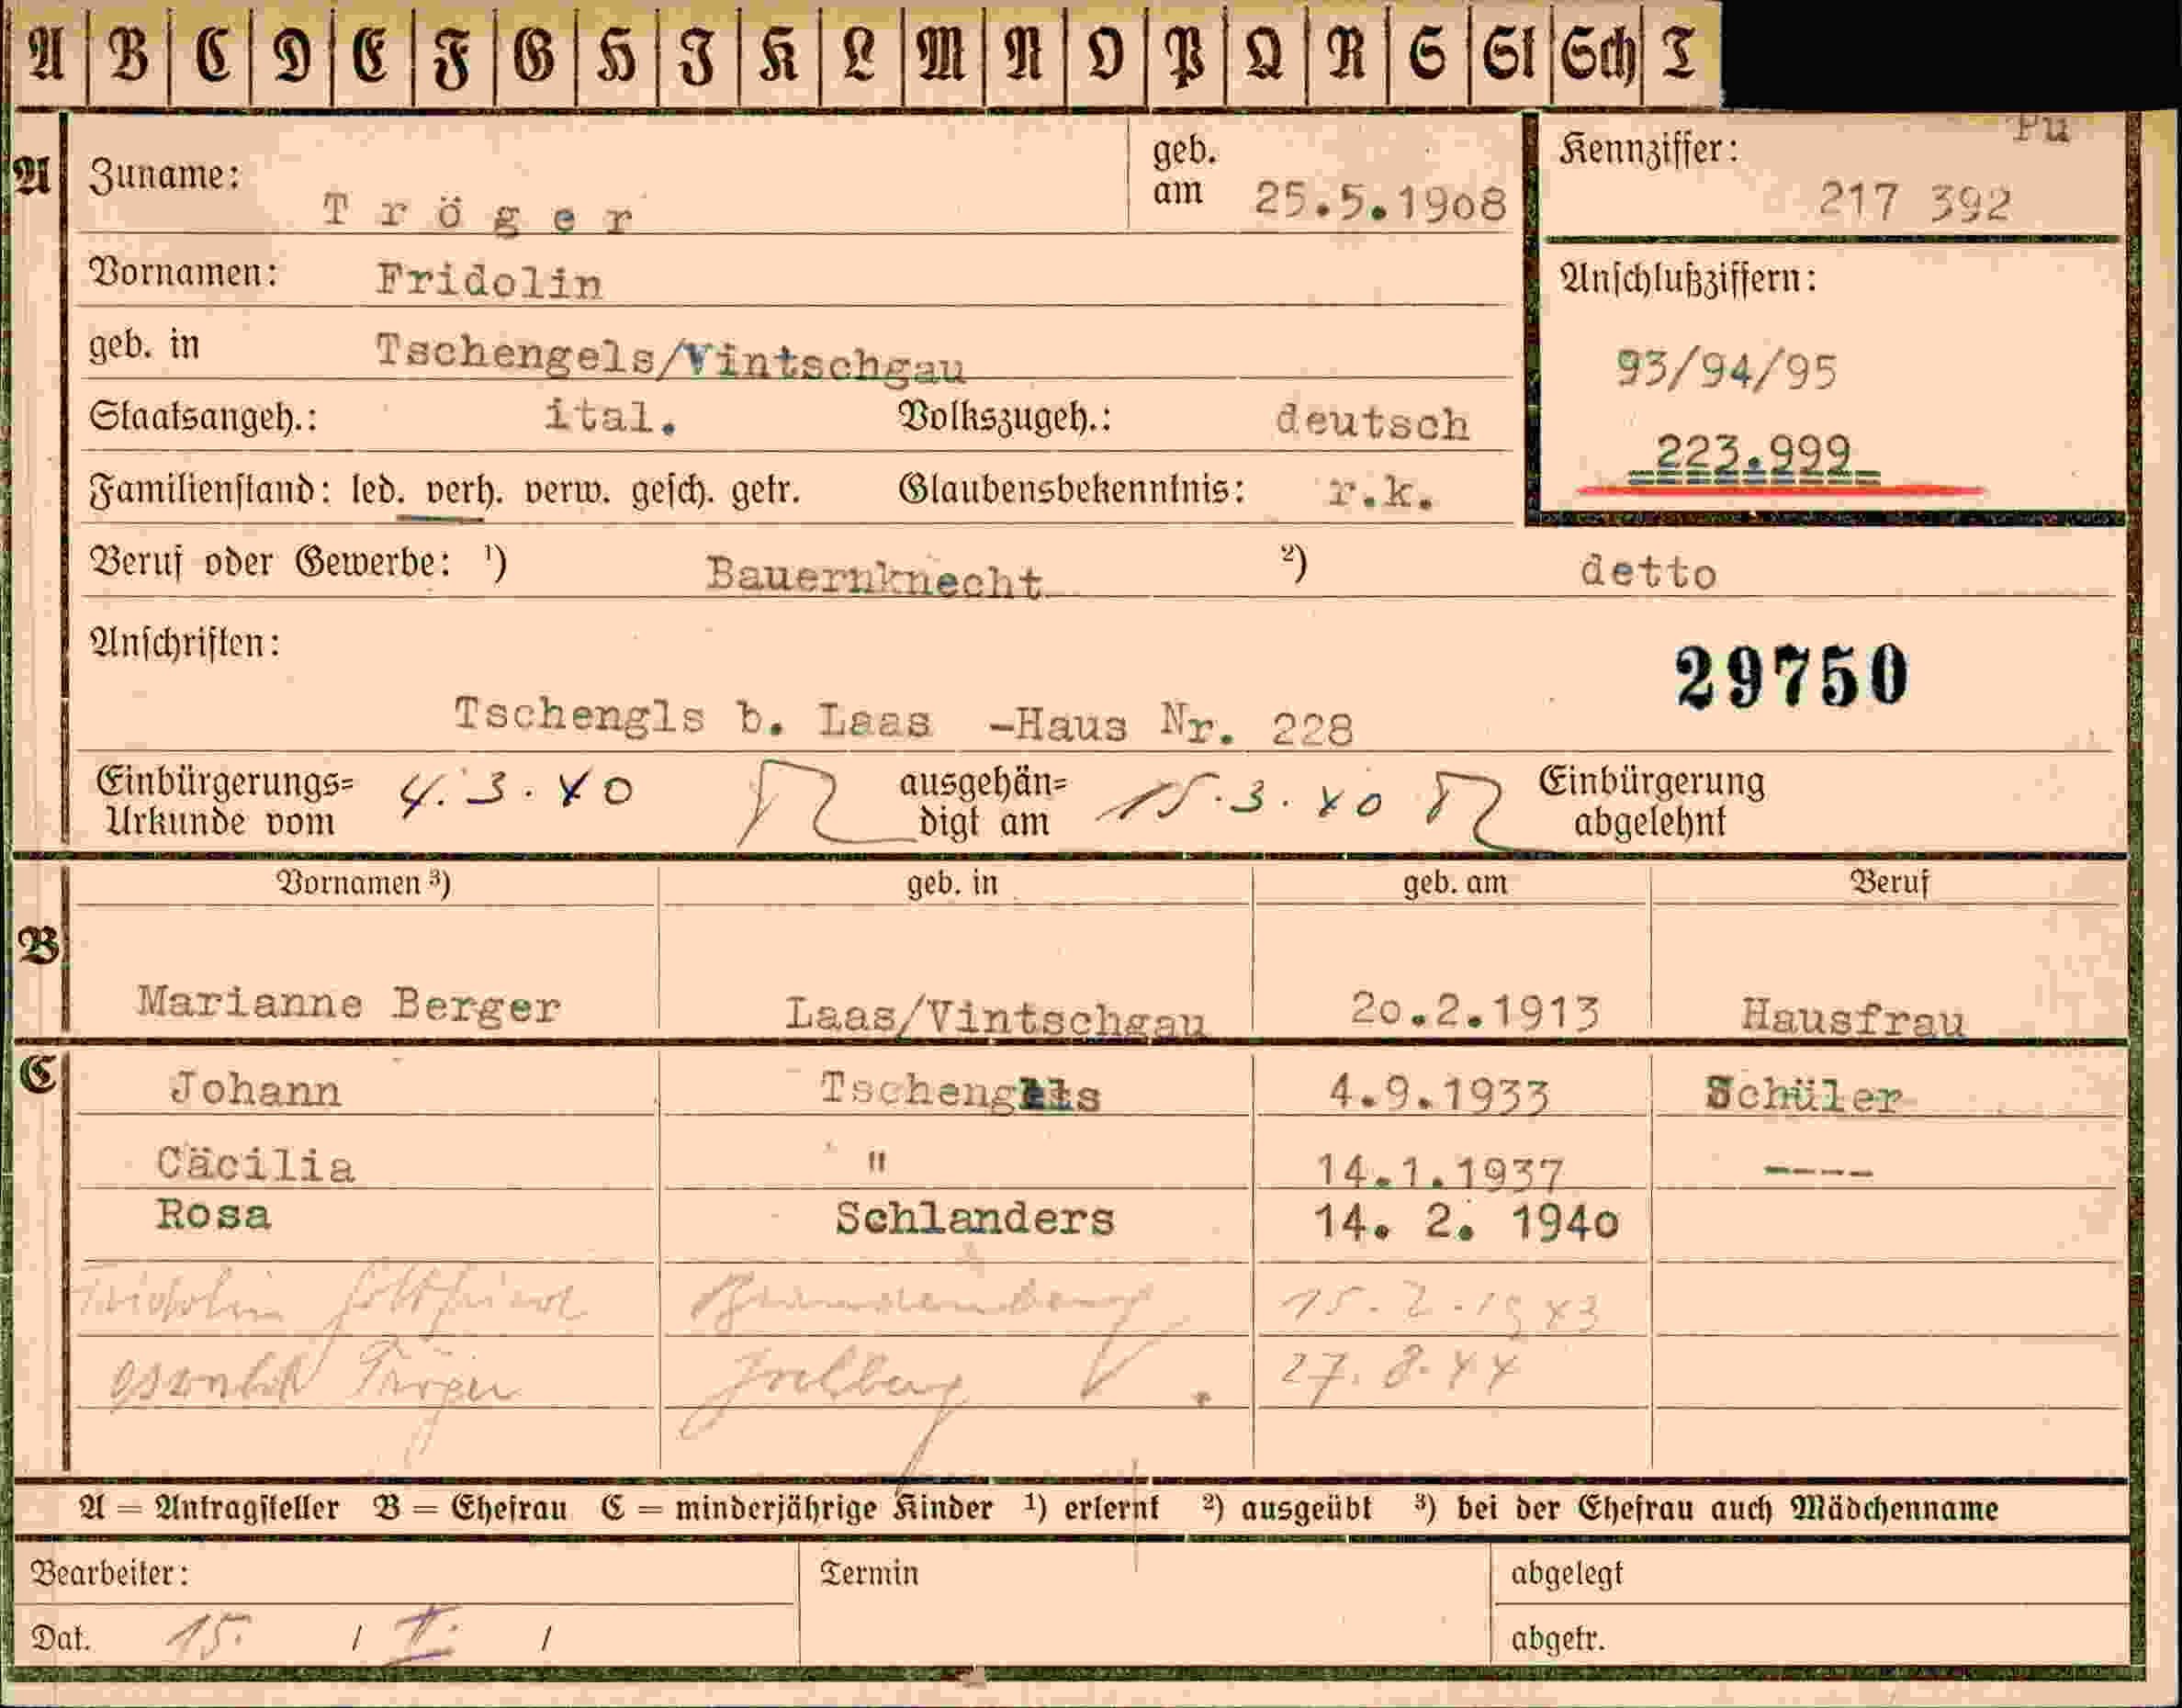 A B C D E F G H I K L M N O P Q R S St Sch T
Pu
A Zuname: Tröger geb. am 25.5.1908 Kennziffer: 217 392
Vornamen: Fridolin Anschlußziffern:
geb. in Tschengels/Vintschgau 93/94/95
Staatsangeh.: ital. Volkszugeh.: deutsch 223.999
Familienstand: led. verh. verw. gesch. getr. Glaubensbekenntnis: r.k.
Beruf oder Gewerbe: ¹) Bauernknecht ²) detto
Anschriften: 29750
Tschengls b. Laas -Haus Nr. 228
Einbürgerungs= Urkunde vom 4.3.40 ausgehän= digt am 15.3.40 Einbürgerung abgelehnt
Vornamen ³) geb. in geb. am Beruf
B
Marianne Berger Laas/Vintschgau 20.2.1913 Hausfrau
C Johann Tschengls 4.9.1933 Schüler
Cäcilia " 14.1.1937 ----
Rosa Schlanders 14. 2. 1940
Fridolin Gottfried 15.2.1943
Tröger 27.8.44
A = Antragsteller B = Ehefrau C = minderjährige Kinder ¹) erlernt ²) ausgeübt ³) bei der Ehefrau auch Mädchenname
Bearbeiter: Termin abgelegt
Dat. 15. / I. / abgetr.